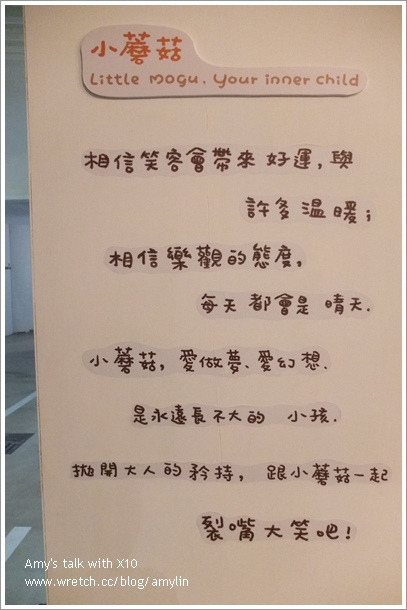 小蘑菇
Little mogu. Your inner child
相信笑容會帶來好運,與
許多溫暖;
相信樂觀的態度,
每天都會是晴天.
小蘑菇,愛做夢、愛幻想.
是永遠長不大的 小孩.
拋開大人的矜持, 跟小蘑菇一起
裂嘴大笑吧!
Amy's talk with X10
www.wretch.cc/blog/amylin